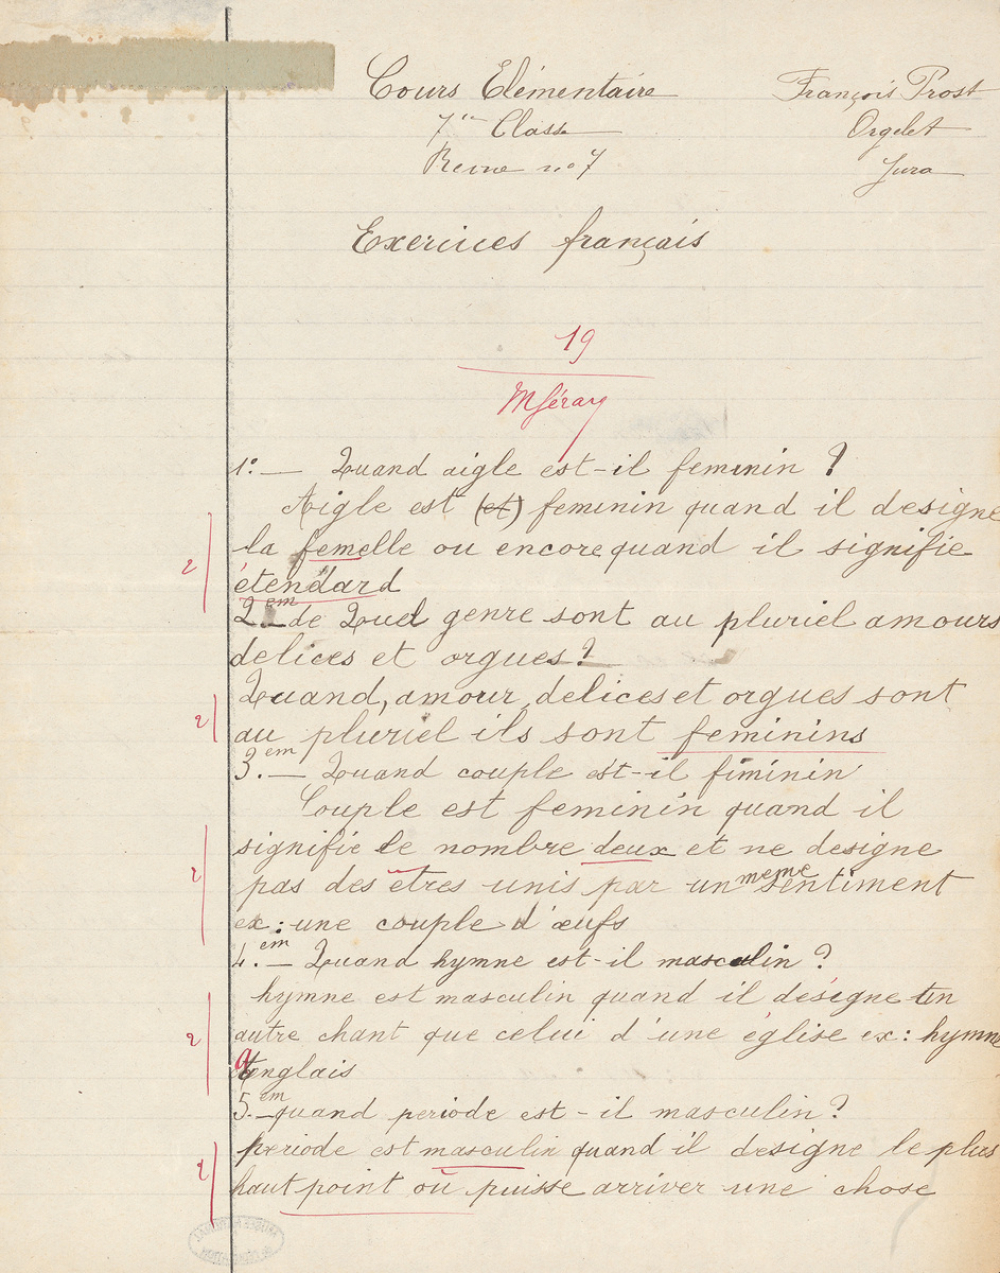 Cours Elémentaire
François Prost
7e Classe
Orgelet
Revue no 7
Jura
Exercices français
19
MSéray
1° — Quand aigle est-il feminin ?
Aigle est (et) feminin quand il designe
la femelle ou encore quand il signifie
2
étendard
2.em — de Quel genre sont au pluriel amours
delices et orgues ?
Quand, amour, delices et orgues sont
2
au pluriel ils sont feminins
3.em — Quand couple est-il fiminin
Couple est feminin quand il
signifie le nombre deux et ne designe
2
pas des êtres unis par un meme sentiment
ex : une couple d'œufs
4.em — Quand hymne est-il masculin ?
hymne est masculin quand il désigne un
2
autre chant que celui d'une église ex : hymne
anglais
5.em — quand periode est-il masculin ?
periode est masculin quand il designe le plus
2
haut point où puisse arriver une chose